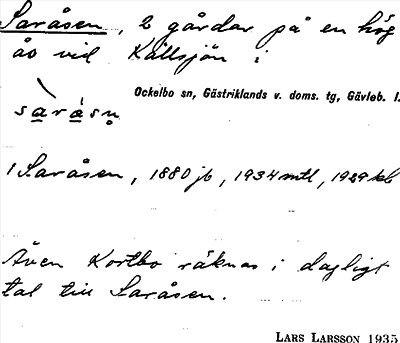 Saråsen, 2 gårdar på en hög
ås vid Källsjön i
Ockelbo sn, Gästriklands v. doms. tg, Gävleb. l.
saråsn̥
1 Saråsen, 1880 jb, 1934 mtl, 1929 kb
Även Kortbo räknas i dagligt
tal till Saråsen.
LARS LARSSON 1935